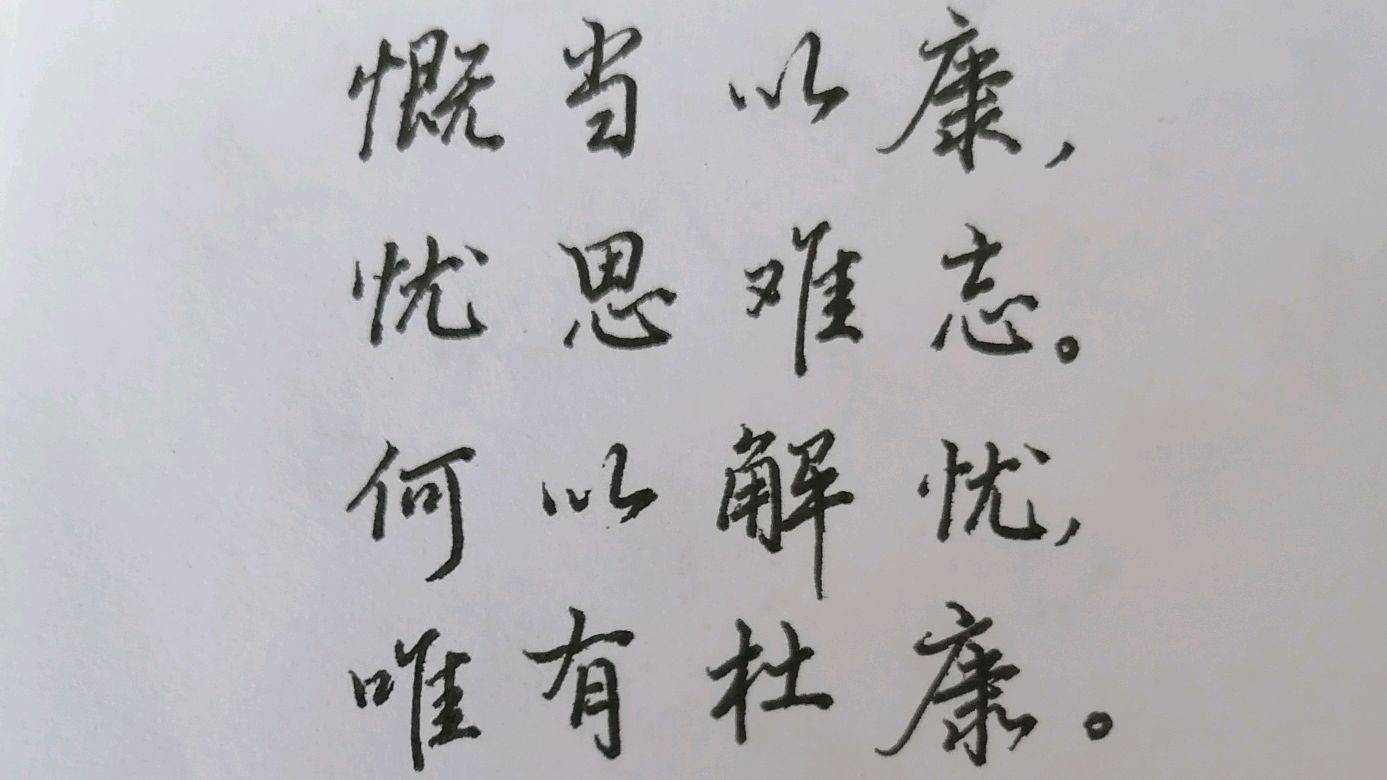 慨当以康，
忧思难志。
何以解忧，
唯有杜康。